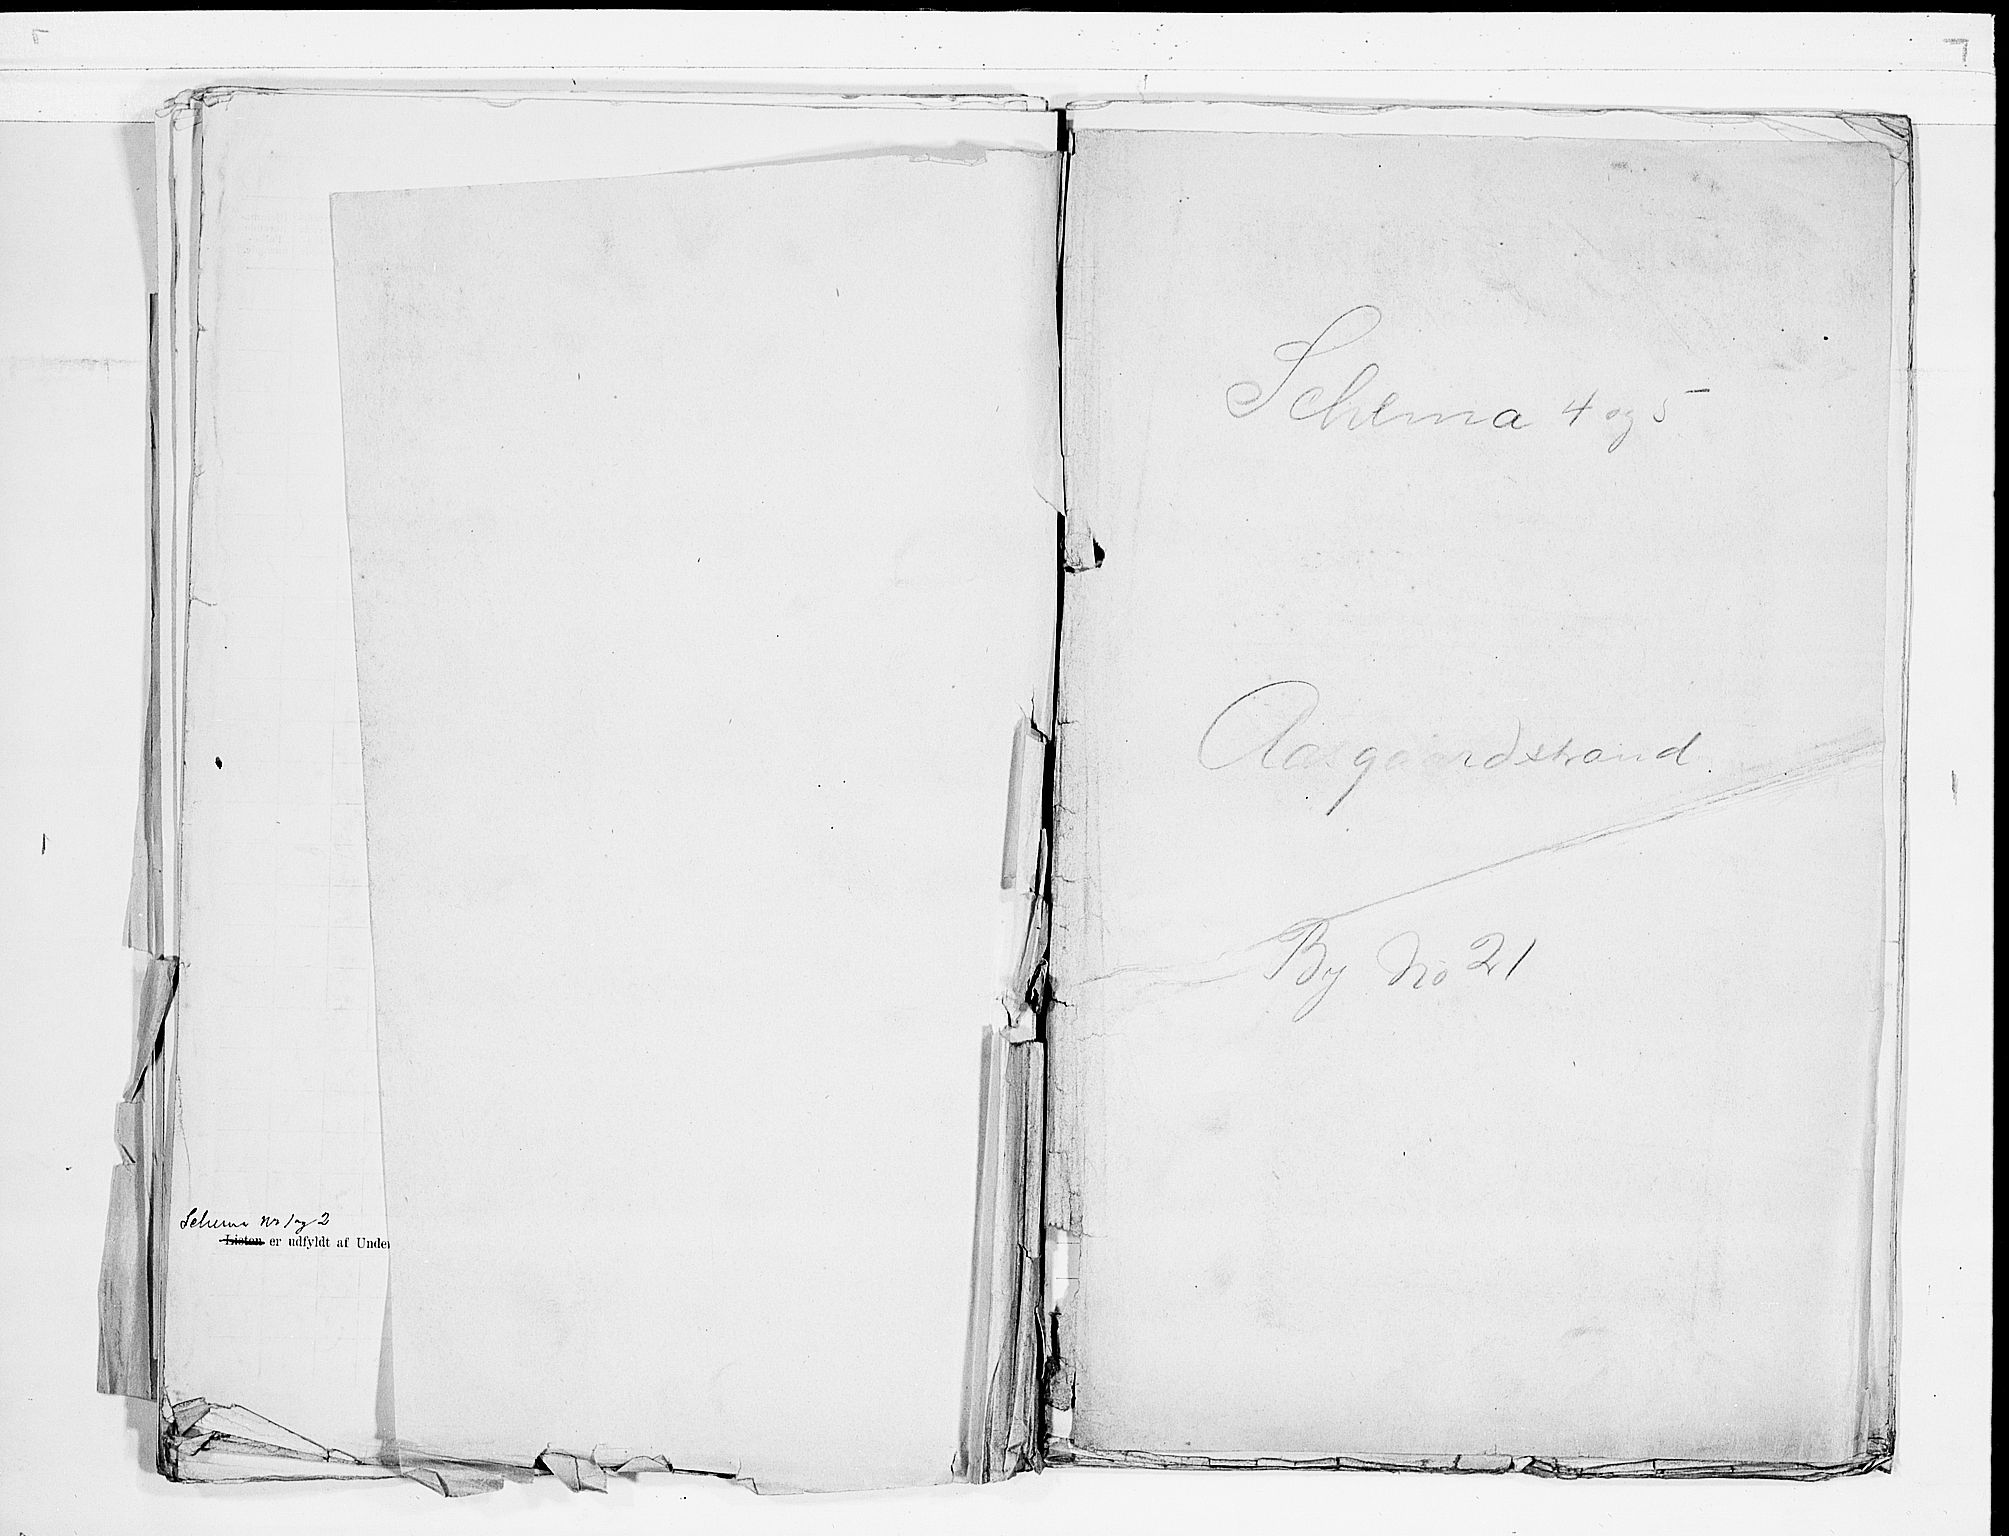 Schema No 1 og 2
Listen er udfyldt af Under
Schema 4 og 5
Aasgaardstrand.
By No 21